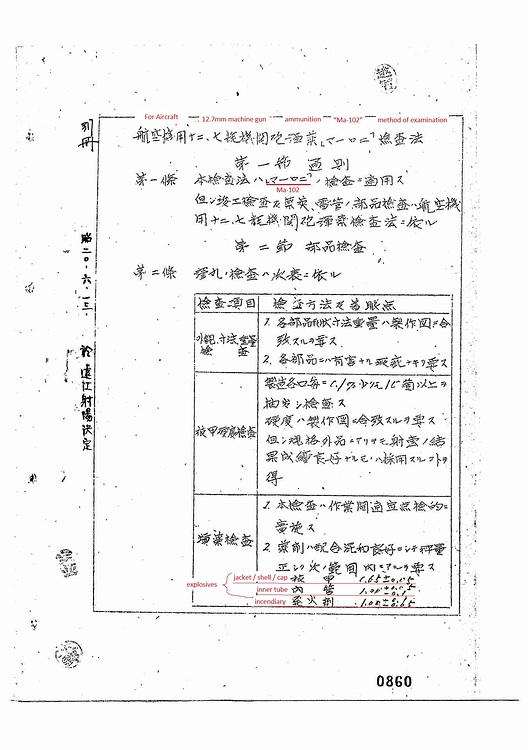 For Aircraft 12.7mm machine gun ammunition "Ma-102" method of examination
別冊
航空機用十二、七粍機関砲弾薬「マー一〇二」検査法
第一節 通則
第一條 本検査法ハ「マー一〇二」ノ検査ニ適用ス
Ma-102
但シ竣工検査及薬莢、雷管ノ部品検査ハ航空機
用十二、七粍機関砲弾薬検査法ニ依ル
第二節 部品検査
第二條 ノ検査ハ次表ニ依ル
昭二〇・六・一三 於 遠江射場決定
検査項目 検査方法及着眼点
外観、寸法重量
検査
1. 各部品ノ形状寸法重量ハ製作図ニ合
致スルヲ要ス
2. 各部品ニハ有害ナル瑕疵ナキヲ要ス
被甲硬度検査
製造各口毎ニ
抽出シ検査ス
硬度ハ製作図ニ合致スルヲ要ス
但シ規格外品ニアリテモ射撃ノ結
果成績良好ナルモノハ採用スルコトヲ
得
填薬検査
1. 本検査ハ作業間適宜点検的ニ
実施ス
2. 薬剤ハ配合混和良好ニシテ秤量
正シク次ノ範囲内ニアルヲ要ス
explosives
jacket / shell / cap 被甲 1.65±0.05
inner tube 内管
incendiary
0860